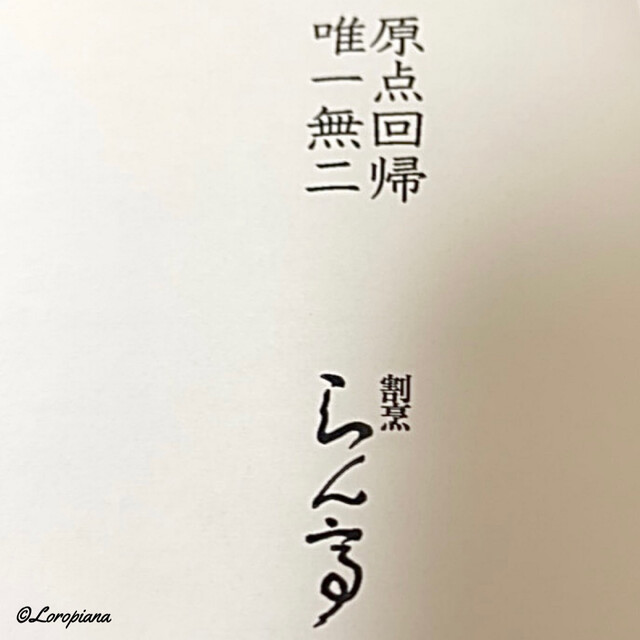 原点回帰
唯一無二
割烹
らん亭
©Loropiana